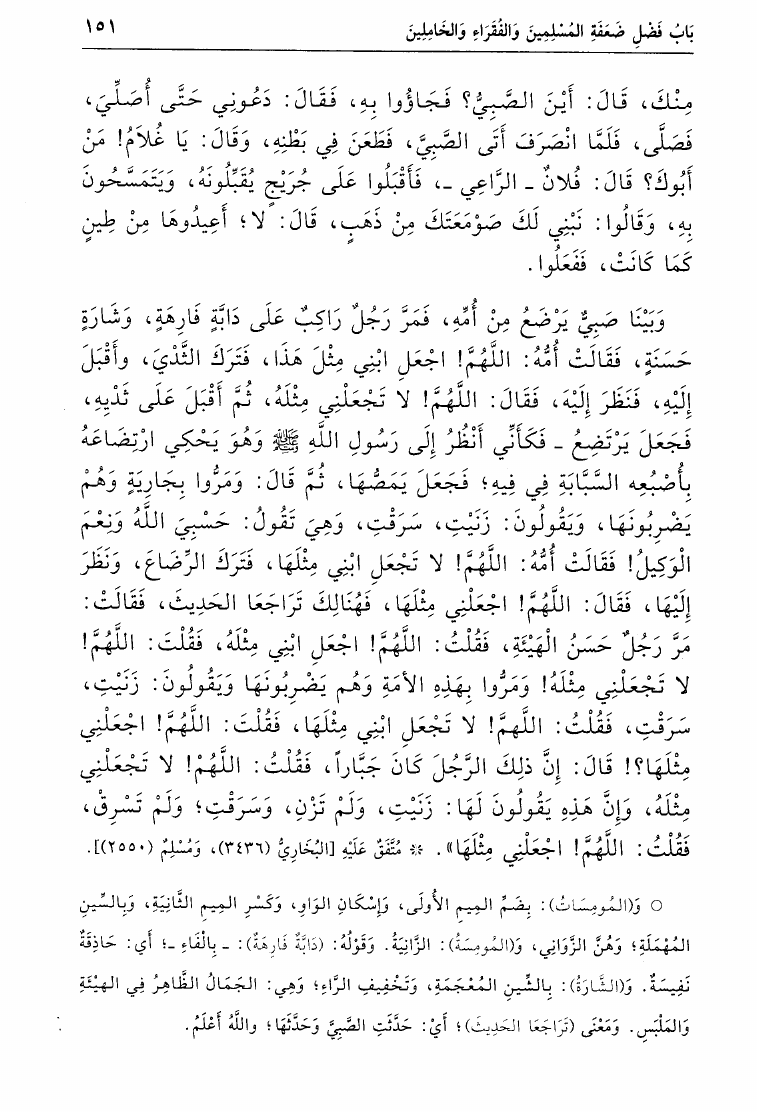 بَابُ فَضْلِ ضَعَفَةِ المُسْلِمِينَ وَالفُقَرَاءِ وَالخَامِلِينَ ١٥١
مِنْكَ، قَالَ: أَيْنَ الصَّبِيُّ؟ فَجَاؤُوا بِهِ، فَقَالَ: دَعُونِي حَتَّى أُصَلِّيَ،
فَصَلَّى، فَلَمَّا انْصَرَفَ أَتَى الصَّبِيَّ، فَطَعَنَ فِي بَطْنِهِ، وَقَالَ: يَا غُلَامُ! مَنْ
أَبُوكَ؟ قَالَ: فُلَانٌ ـ الرَّاعِي ـ، فَأَقْبَلُوا عَلَى جُرَيْجٍ يُقَبِّلُونَهُ، وَيَتَمَسَّحُونَ
بِهِ، وَقَالُوا: نَبْنِي لَكَ صَوْمَعَتَكَ مِنْ ذَهَبٍ، قَالَ: لَا؛ أَعِيدُوهَا مِنْ طِينٍ
كَمَا كَانَتْ، فَفَعَلُوا.
وَبَيْنَا صَبِيٌّ يَرْضَعُ مِنْ أُمِّهِ، فَمَرَّ رَجُلٌ رَاكِبٌ عَلَى دَابَّةٍ فَارِهَةٍ، وَشَارَةٍ
حَسَنَةٍ، فَقَالَتْ أُمُّهُ: اللَّهُمَّ! اجْعَلِ ابْنِي مِثْلَ هَذَا، فَتَرَكَ الثَّدْيَ، وأَقْبَلَ
إِلَيْهِ، فَنَظَرَ إِلَيْهِ، فَقَالَ: اللَّهُمَّ! لَا تَجْعَلْنِي مِثْلَهُ، ثُمَّ أَقْبَلَ عَلَى ثَدْيِهِ،
فَجَعَلَ يَرْتَضِعُ ـ فَكَأَنِّي أَنْظُرُ إِلَى رَسُولِ اللَّهِ ﷺ وَهُوَ يَحْكِي ارْتِضَاعَهُ
بِأُصْبُعِه السَّبَّابَةِ فِي فِيهِ؛ فَجَعَلَ يَمَصُّهَا، ثُمَّ قَالَ: وَمَرُّوا بِجَارِيَةٍ وَهُمْ
يَضْرِبُونَهَا، وَيَقُولُونَ: زَنَيْتِ، سَرَقْتِ، وَهِيَ تَقُولُ: حَسْبِيَ اللَّهُ وَنِعْمَ
الْوَكِيلُ! فَقَالَتْ أُمُّهُ: اللَّهُمَّ! لَا تَجْعَلِ ابْنِي مِثْلَهَا، فَتَرَكَ الرِّضَاعَ، وَنَظَرَ
إِلَيْهَا، فَقَالَ: اللَّهُمَّ! اجْعَلْنِي مِثْلَهَا، فَهُنَالِكَ تَرَاجَعَا الحَدِيثَ، فَقَالَتْ:
مَرَّ رَجُلٌ حَسَنُ الْهَيْئَةِ، فَقُلْتُ: اللَّهُمَّ! اجْعَلِ ابْنِي مِثْلَهُ، فَقُلْتَ: اللَّهُمَّ!
لَا تَجْعَلْنِي مِثْلَهُ! وَمَرُّوا بِهَذِهِ الأَمَةِ وَهُم يَضْرِبُونَهَا وَيَقُولُونَ: زَنَيْتِ،
سَرَقْتِ، فَقُلْتُ: اللَّهمَّ! لَا تَجْعَلِ ابْنِي مِثْلَهَا، فَقُلْتَ: اللَّهُمَّ! اجْعَلْنِي
مِثْلَهَا؟! قَالَ: إِنَّ ذلِكَ الرَّجُلَ كَانَ جَبَّاراً، فَقُلْتُ: اللَّهُمَّ! لَا تَجْعَلْنِي
مِثْلَهُ، وَإِنَّ هَذِهِ يَقُولُونَ لَهَا: زَنَيْتِ، وَلَمْ تَزْنِ، وَسَرَقْتِ؛ وَلَمْ تَسْرِقْ،
فَقُلْتُ: اللَّهُمَّ! اجْعَلْنِي مِثْلَهَا». ※ مُتَّفَقٌ عَلَيْهِ [البُخَارِيُّ (٣٤٣٦)، وَمُسْلِمٌ (٢٥٥٠)].
○ وَ(المُومِسَاتُ): بِضَمِّ المِيمِ الأُولَى، وَإِسْكَانِ الوَاوِ، وَكَسْرِ المِيمِ الثَّانِيَةِ، وَبِالسِّينِ
المُهْمَلَةِ؛ وَهُنَّ الزَّوَانِي، وَ(المُومِسَةُ): الزَّانِيَةُ. وَقَوْلُهُ: (دَابَّةٌ فَارِهَةٌ): ـ بِالْفَاءِ ـ؛ أي: حَاذِقَةٌ
نَفِيسَةٌ. وَ(الشَّارَةُ): بِالشِّينِ المُعْجَمَةِ، وَتَخْفِيفِ الرَّاءِ؛ وَهِيَ: الجَمَالُ الظَّاهِرُ فِي الهَيْئَةِ
وَالمَلْبَسِ. وَمَعْنَى (تَرَاجَعَا الحَدِيثَ)؛ أَيْ: حَدَّثَتِ الصَّبِيَّ وَحَدَّثَهَا؛ واللَّهُ أَعْلَمُ.